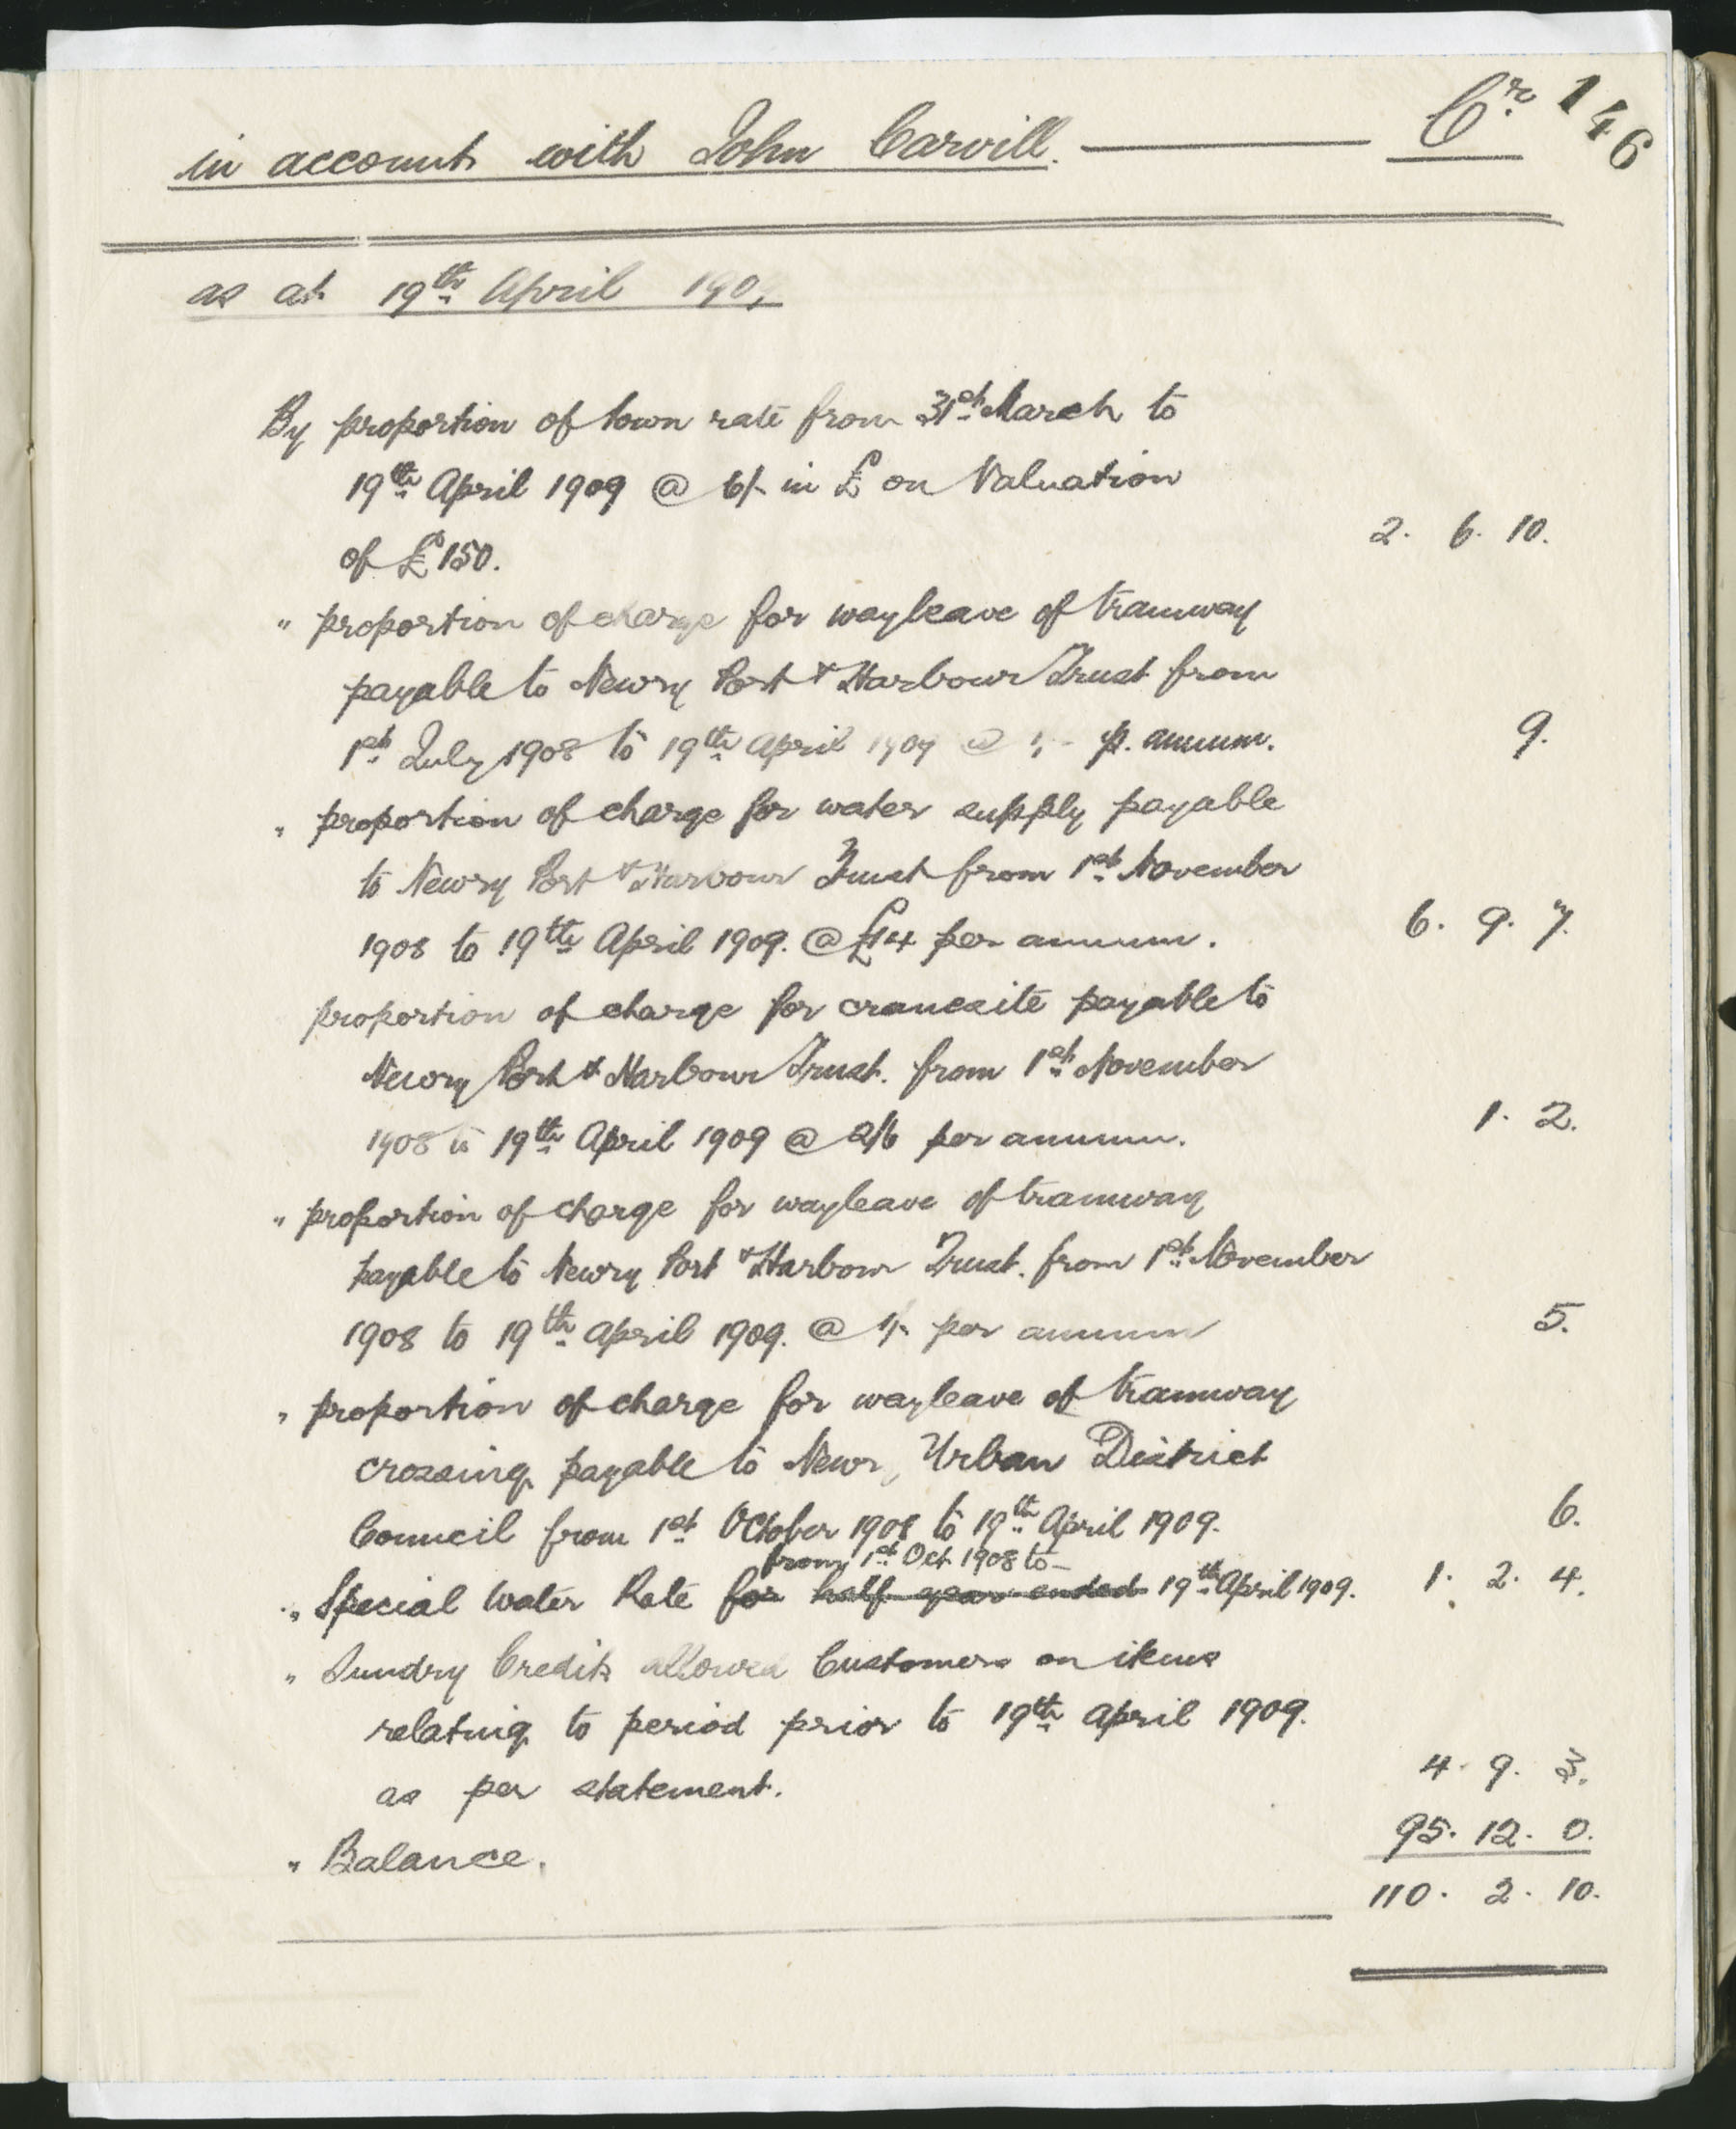 146
in account with John Carvill. Cr.
as at 19th April 190
By proportion of town rate from 31st March to
19th April 1909 @ 6/- in £ on Valuation
of £150. 2. 6. 10.
" proportion of charge for wayleave of tramway
payable to Newry Port & Harbour Trust from
1st July 1908 to 19th April 1909 @ 1/- p. annum. 9.
" proportion of charge for water supply payable
to Newry Port & Harbour Trust from 1st November
1908 to 19th April 1909. @ £14 per annum. 6. 9. 7.
proportion of charge for cranesite payable to
Newry Port & Harbour Trust. from 1st November
1908 to 19th April 1909 @ 2/6 per annum. 1. 2.
" proportion of charge for wayleave of tramway
payable to Newry Port & Harbour Trust. from 1st November
1908 to 19th April 1909. @ 1/- per annum 5.
" proportion of charge for wayleave of tramway
crossing payable to Newry Urban District
Council from 1st October 1908 to 19th April 1909. 6.
from 1st Oct 1908 to
" Special Water Rate for half year ended 19th April 1909. 1. 2. 4.
" Sundry Credits allowed Customers on items
relating to period prior to 19th April 1909.
as per statement. 4. 9. 3.
" Balance. 95. 12. 0.
110. 2. 10.